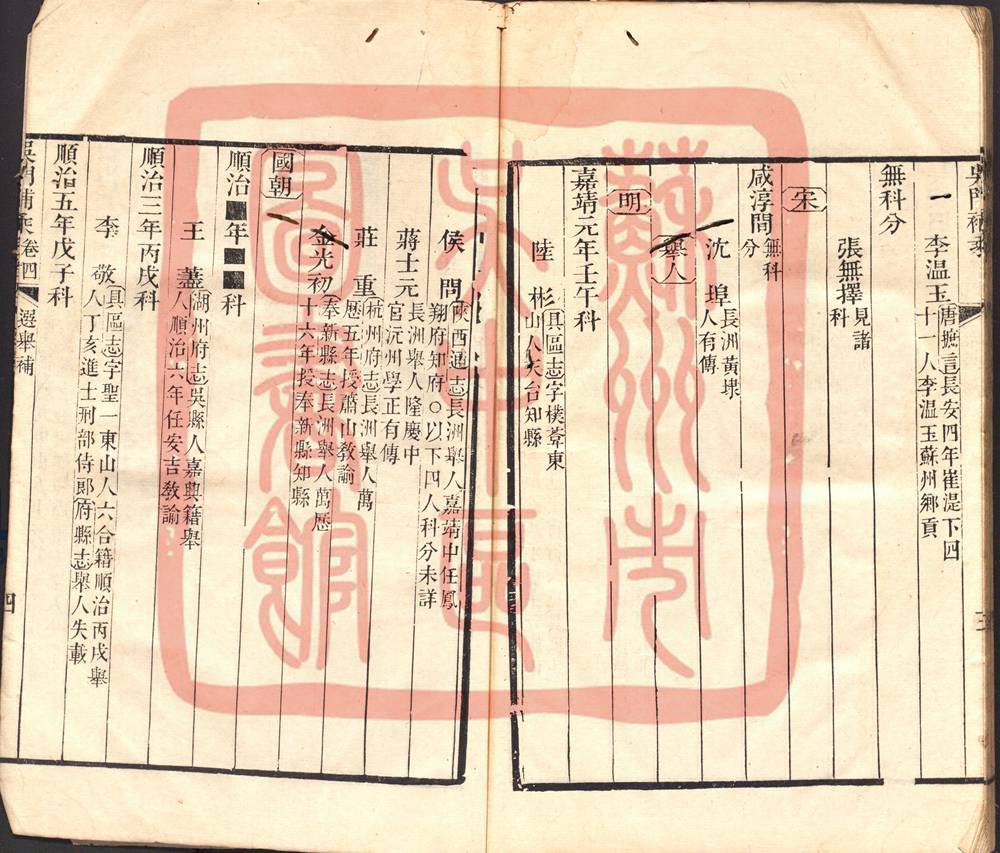 吳門補乘
李溫玉 唐摭言長安四年崔湜下四
十一人李溫玉蘇州鄉貢
無科分
張無擇 見諸
科
宋
咸淳間 無科
分
沈 埠 長洲黃埭
人有傳
舉人
明
嘉靖元年壬午科
陸 彬 具區志字樸菴東
山人天台知縣
侯 問 陝西通志長洲舉人嘉靖中任鳳
翔府知府○以下四人科分未詳
蔣士元 長洲舉人隆慶中
官沅州學正有傳
莊 重 杭州府志長洲舉人萬
歷五年授蕭山教諭
金光初 奉新縣志長洲舉人萬歷
十六年授奉新縣知縣
國朝
順治■年■■科
王 藎 湖州府志吳縣人嘉興籍舉
人順治六年任安吉教諭
順治三年丙戌科
李 敬 具區志字聖一東山人六合籍順治丙戌舉
人丁亥進士刑部侍郎府縣志舉人失載
順治五年戊子科
吳門補乘卷四 選舉補
四
蘇州市
吳中區
圖書館